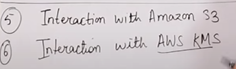 5 Interaction with Amazon S3
6 Interaction with AWS KMS